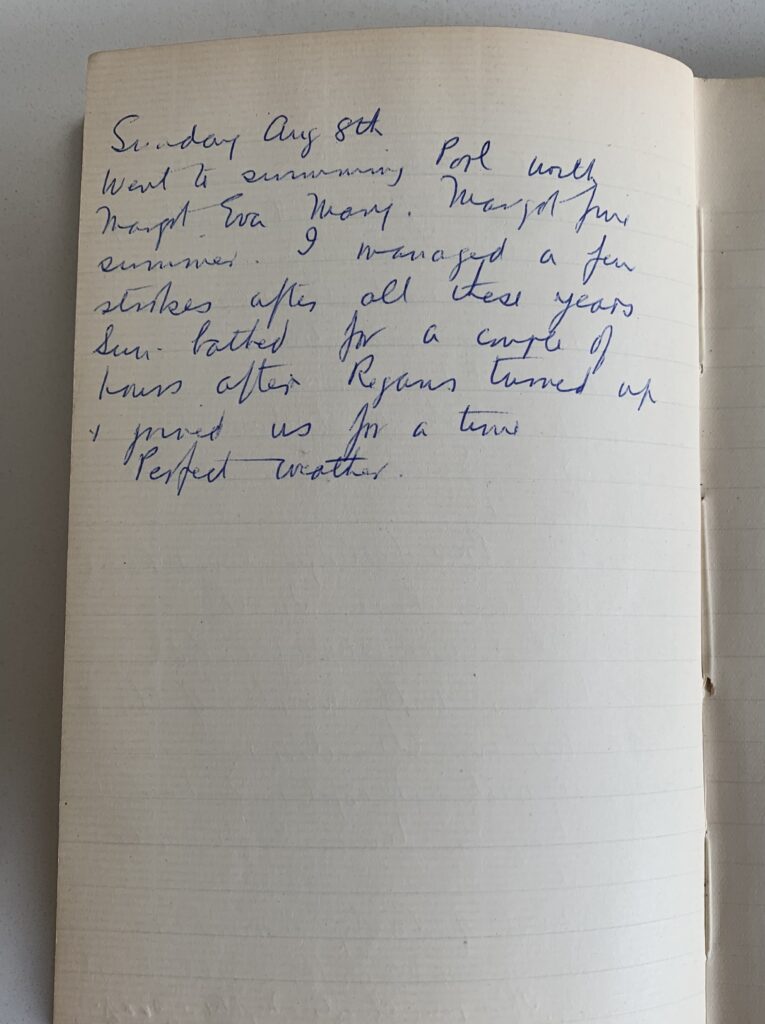 Sunday Aug 8th
Went to swimming Pool with
Margot Eva Mary. Margot fine
swimmer. I managed a few
strokes after all these years
Sun-bathed for a couple of
hours after Regans turned up
& joined us for a time
Perfect weather.